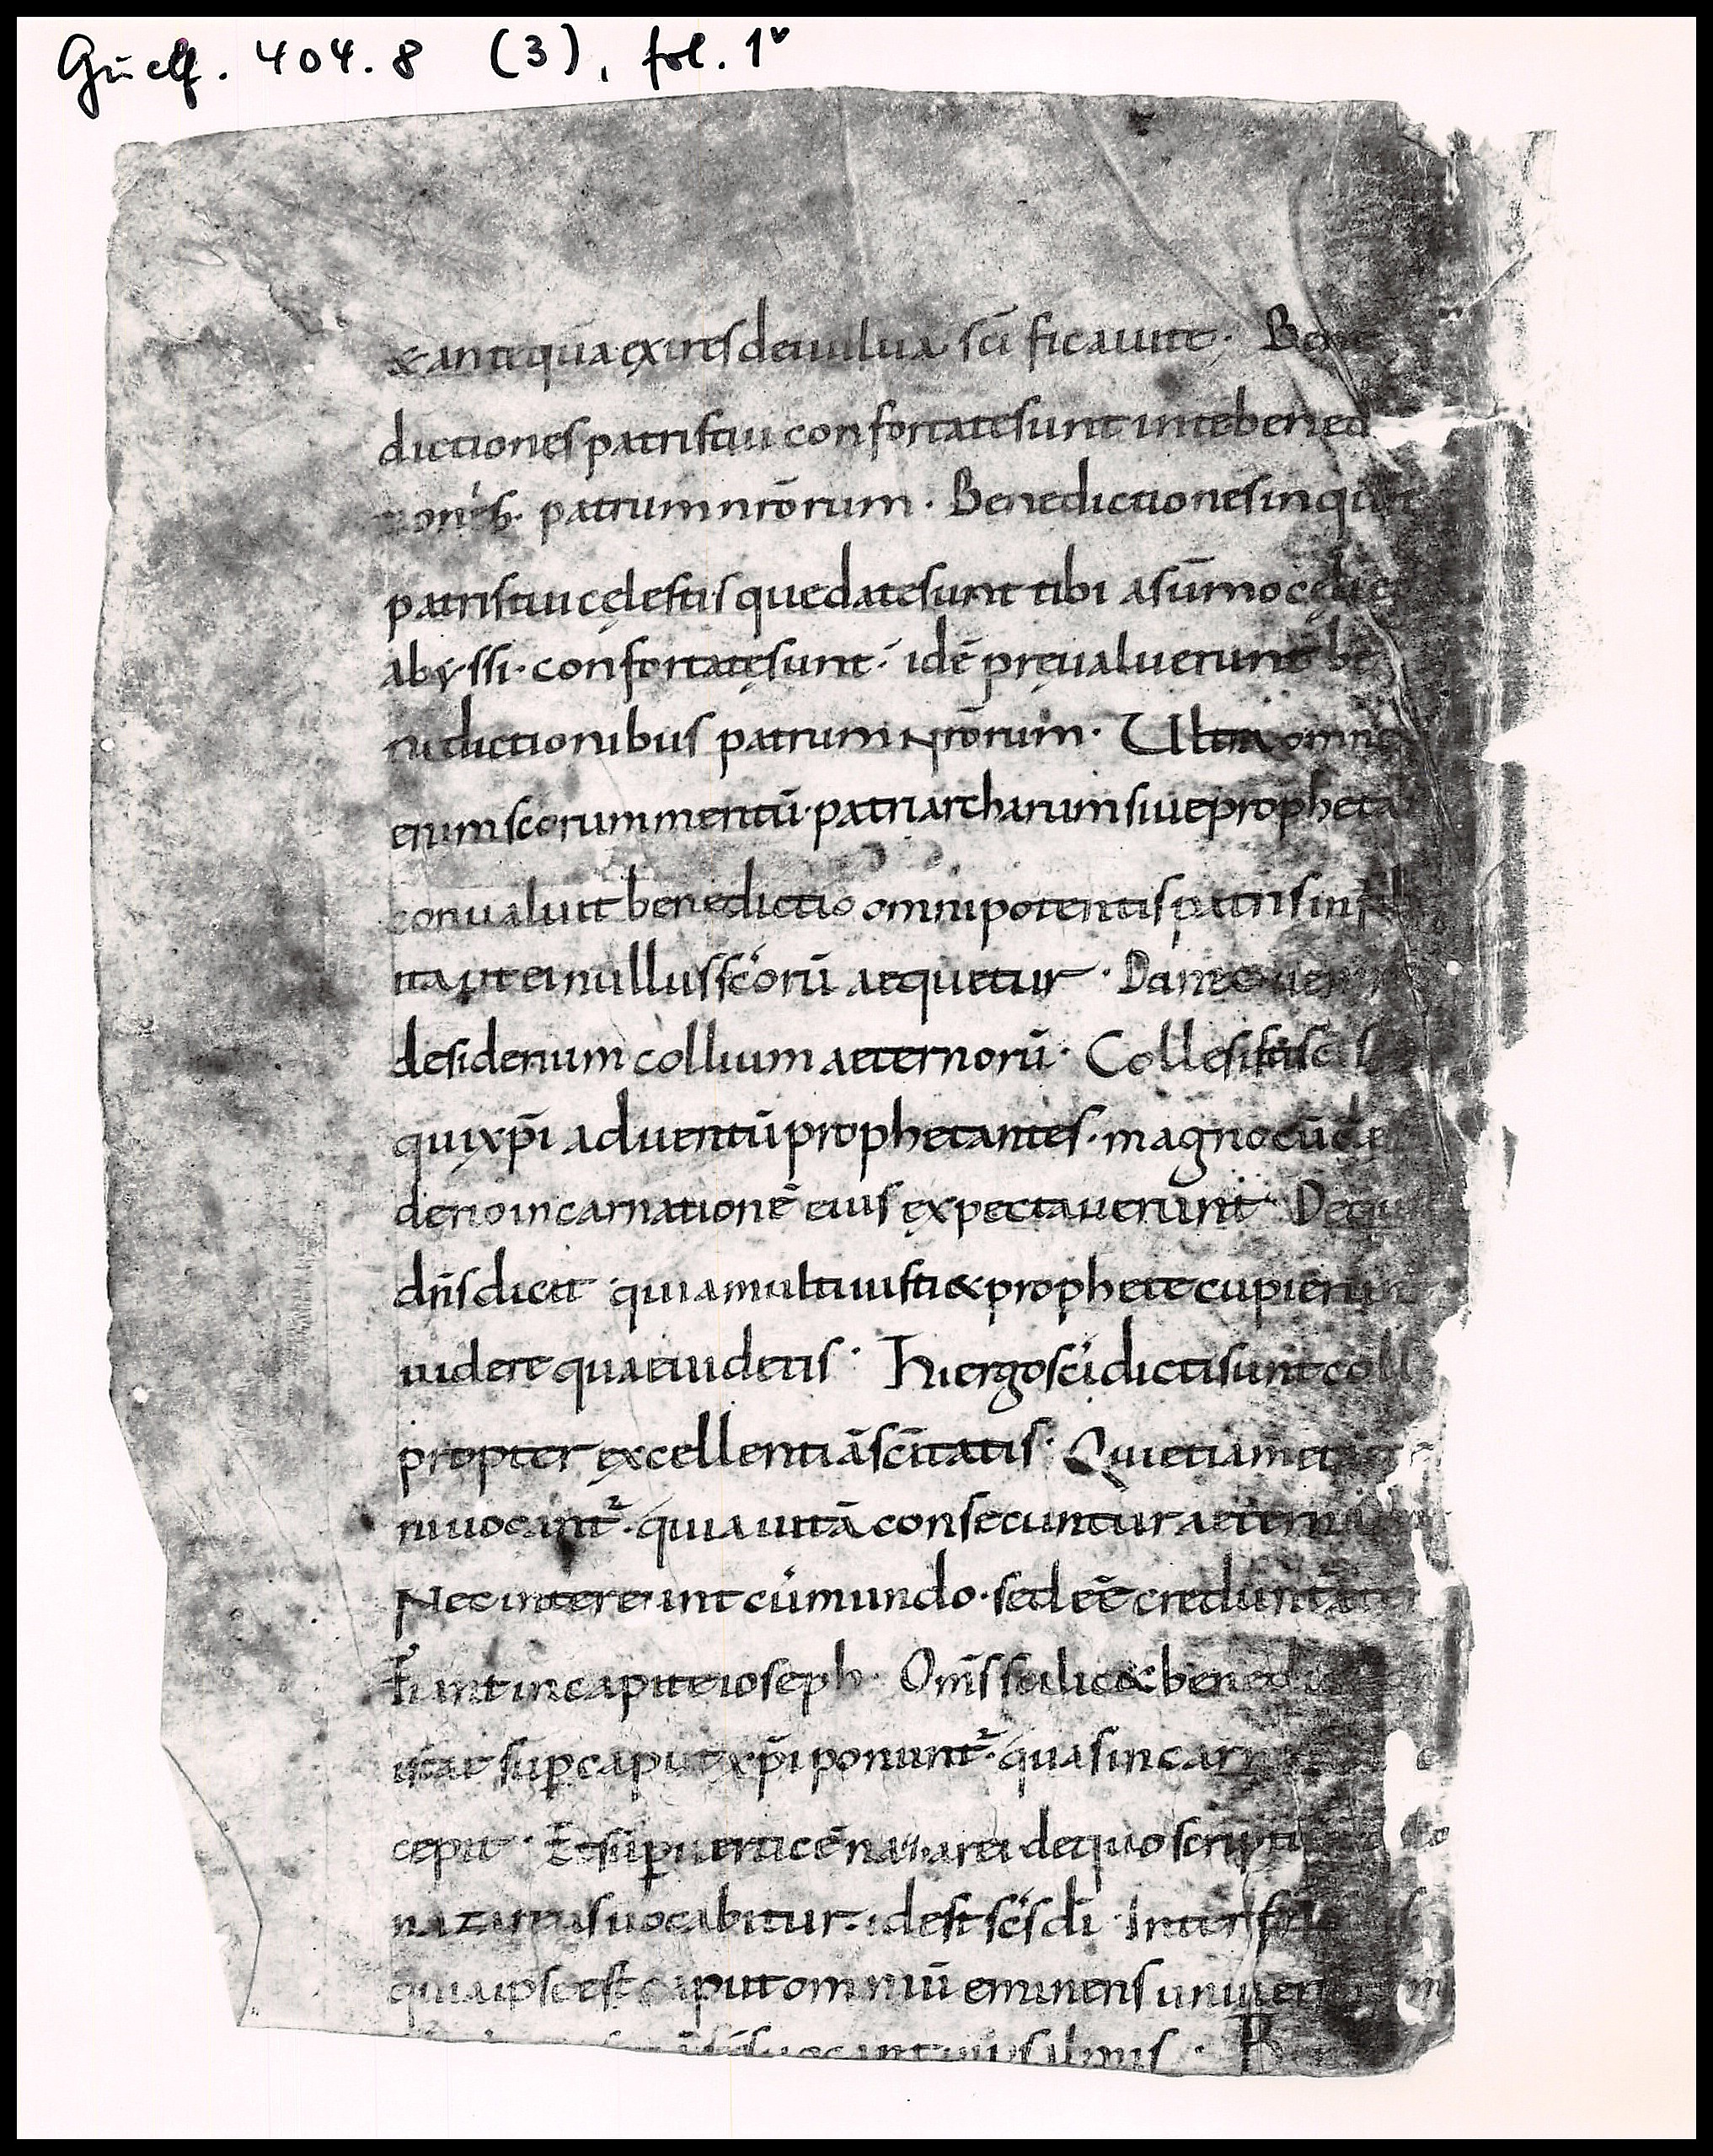 Guelf. 404.8 (3), fol. 1v
& antequā exires de uulua sc̄ificaui te. Bene
dictiones patris tui confortate sunt in te bened
onib; patrum nrōrum. Benedictiones inqui
patris tui cęlestis que date sunt tibi a sūmo cęlo
abyssi. confortatę sunt. id ē pręualuerunt be
nidictionibus patrum nrōrum. Ultra omne
enim sc̄orum mentū patriarcharum siue propheta
conualuit benedictio omnipotentis patris in
ita ut ei nullus sc̄orū aequetur. Donec ueni
desiderium collium aeternorū. Colles isti sc̄i
qui xp̄i aduentū prophetantes. magno cū de
derio incarnationē eius expectauerunt. De qui
dn̄s dicit quia multi iusti & prophete cupierunt
uidere quae uidetis. Hi ergo sc̄i dicti sunt coll
propter excellentiā sc̄itatis. Qui etiam et
ni uocant̄. quia uitā consecuntur aeterna
Nec interierint cū mundo. sed eē creduntur
Fiant in capite ioseph. Om̄s scilic& bened
istae sup̲ caput xp̄i ponunt̄. quas in carn
cepit. Et sup̲ uerticē nazarei de quo script
nazareus uocabitur. id est sc̄s dī. Inter fr
quia ipse est caput omniū eminens uniuer